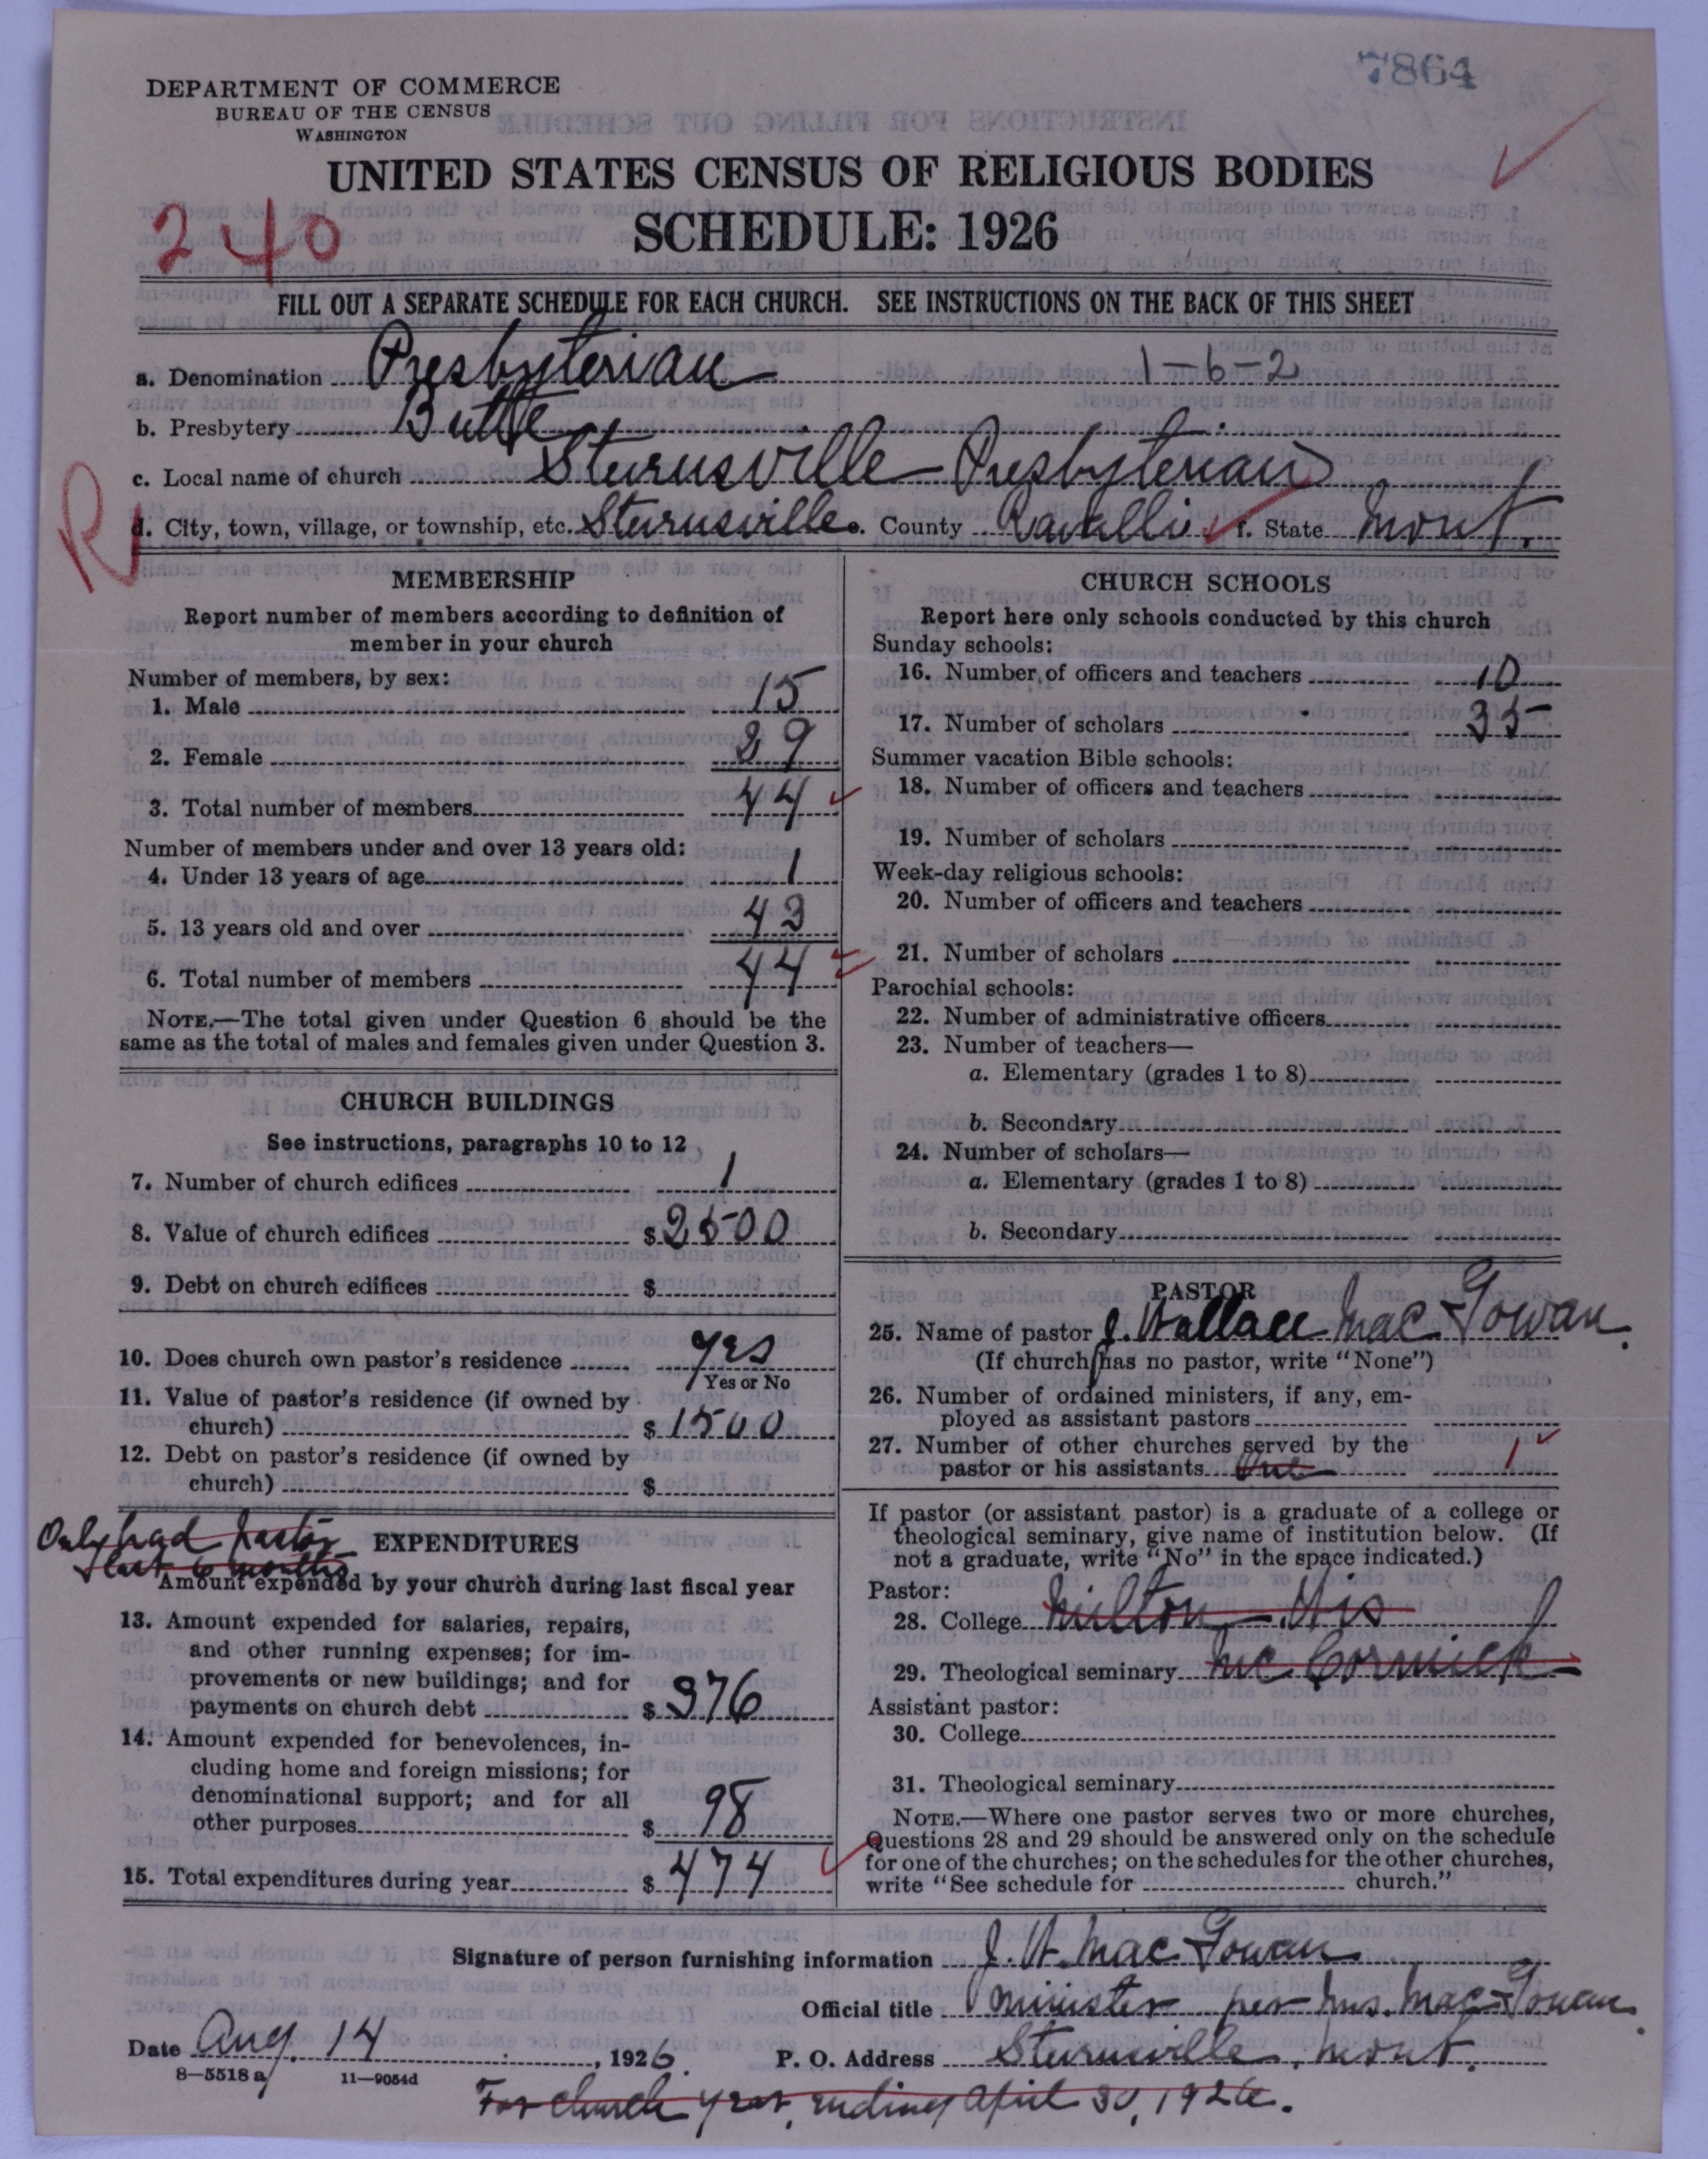 7864
DEPARTMENT OF COMMERCE
BUREAU OF THE CENSUS
WASHINGTON
UNITED STATES CENSUS OF RELIGIOUS BODIES
240
SCHEDULE: 1926
FILL OUT A SEPARATE SCHEDULE FOR EACH CHURCH. SEE INSTRUCTIONS ON THE BACK OF THIS SHEET
a. Denomination Presbyterian 1-6-2
b. Presbytery Butte
c. Local name of church Stevensville Presbyterian
R
d. City, town, village, or township, etc. Stevensville e. County Ravalli f. State Mont.
MEMBERSHIP
Report number of members according to definition of
member in your church
Number of members, by sex:
1. Male 15
2. Female 29
3. Total number of members 44
Number of members under and over 13 years old:
4. Under 13 years of age 1
5. 13 years old and over 43
6. Total number of members 44
NOTE.—The total given under Question 6 should be the
same as the total of males and females given under Question 3.
CHURCH BUILDINGS
See instructions, paragraphs 10 to 12
7. Number of church edifices 1
8. Value of church edifices $2500
9. Debt on church edifices $
10. Does church own pastor's residence yes
Yes or No
11. Value of pastor's residence (if owned by
church) $1500
12. Debt on pastor's residence (if owned by
church) $
Only had Pastor
last 6 months
EXPENDITURES
Amount expended by your church during last fiscal year
13. Amount expended for salaries, repairs,
and other running expenses; for im-
provements or new buildings; and for
payments on church debt $376
14. Amount expended for benevolences, in-
cluding home and foreign missions; for
denominational support; and for all
other purposes $98
15. Total expenditures during year $474
CHURCH SCHOOLS
Report here only schools conducted by this church
Sunday schools:
16. Number of officers and teachers 10
17. Number of scholars 35
Summer vacation Bible schools:
18. Number of officers and teachers
19. Number of scholars
Week-day religious schools:
20. Number of officers and teachers
21. Number of scholars
Parochial schools:
22. Number of administrative officers
23. Number of teachers—
a. Elementary (grades 1 to 8)
b. Secondary
24. Number of scholars—
a. Elementary (grades 1 to 8)
b. Secondary
PASTOR
25. Name of pastor J. Wallace MacGowan.
(If church has no pastor, write "None")
26. Number of ordained ministers, if any, em-
ployed as assistant pastors
27. Number of other churches served by the
pastor or his assistants One 1
If pastor (or assistant pastor) is a graduate of a college or
theological seminary, give name of institution below. (If
not a graduate, write "No" in the space indicated.)
Pastor:
28. College Milton - Wis
29. Theological seminary McCormick
Assistant pastor:
30. College
31. Theological seminary
NOTE.—Where one pastor serves two or more churches,
Questions 28 and 29 should be answered only on the schedule
for one of the churches; on the schedules for the other churches,
write "See schedule for church."
Signature of person furnishing information J. W. MacGowan
Official title Minister per Mrs. MacGowan.
Date Aug. 14, 1926 P. O. Address Stevensville, Mont.
8—5518 a 11—9054d
For church year, ending April 30, 1926.